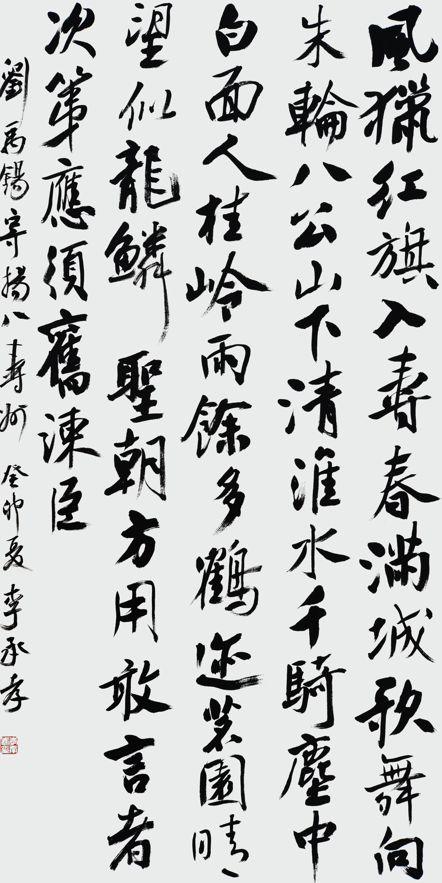 風獵红旗入壽春滿城歌舞向
朱輪八公山下清淮水千騎塵中
白面人桂岭雨餘多鶴迹茗園晴
望似龍鱗聖朝方用敢言者
次第應須舊諫臣
劉禹錫寄楊八壽州 癸卯夏李承孝